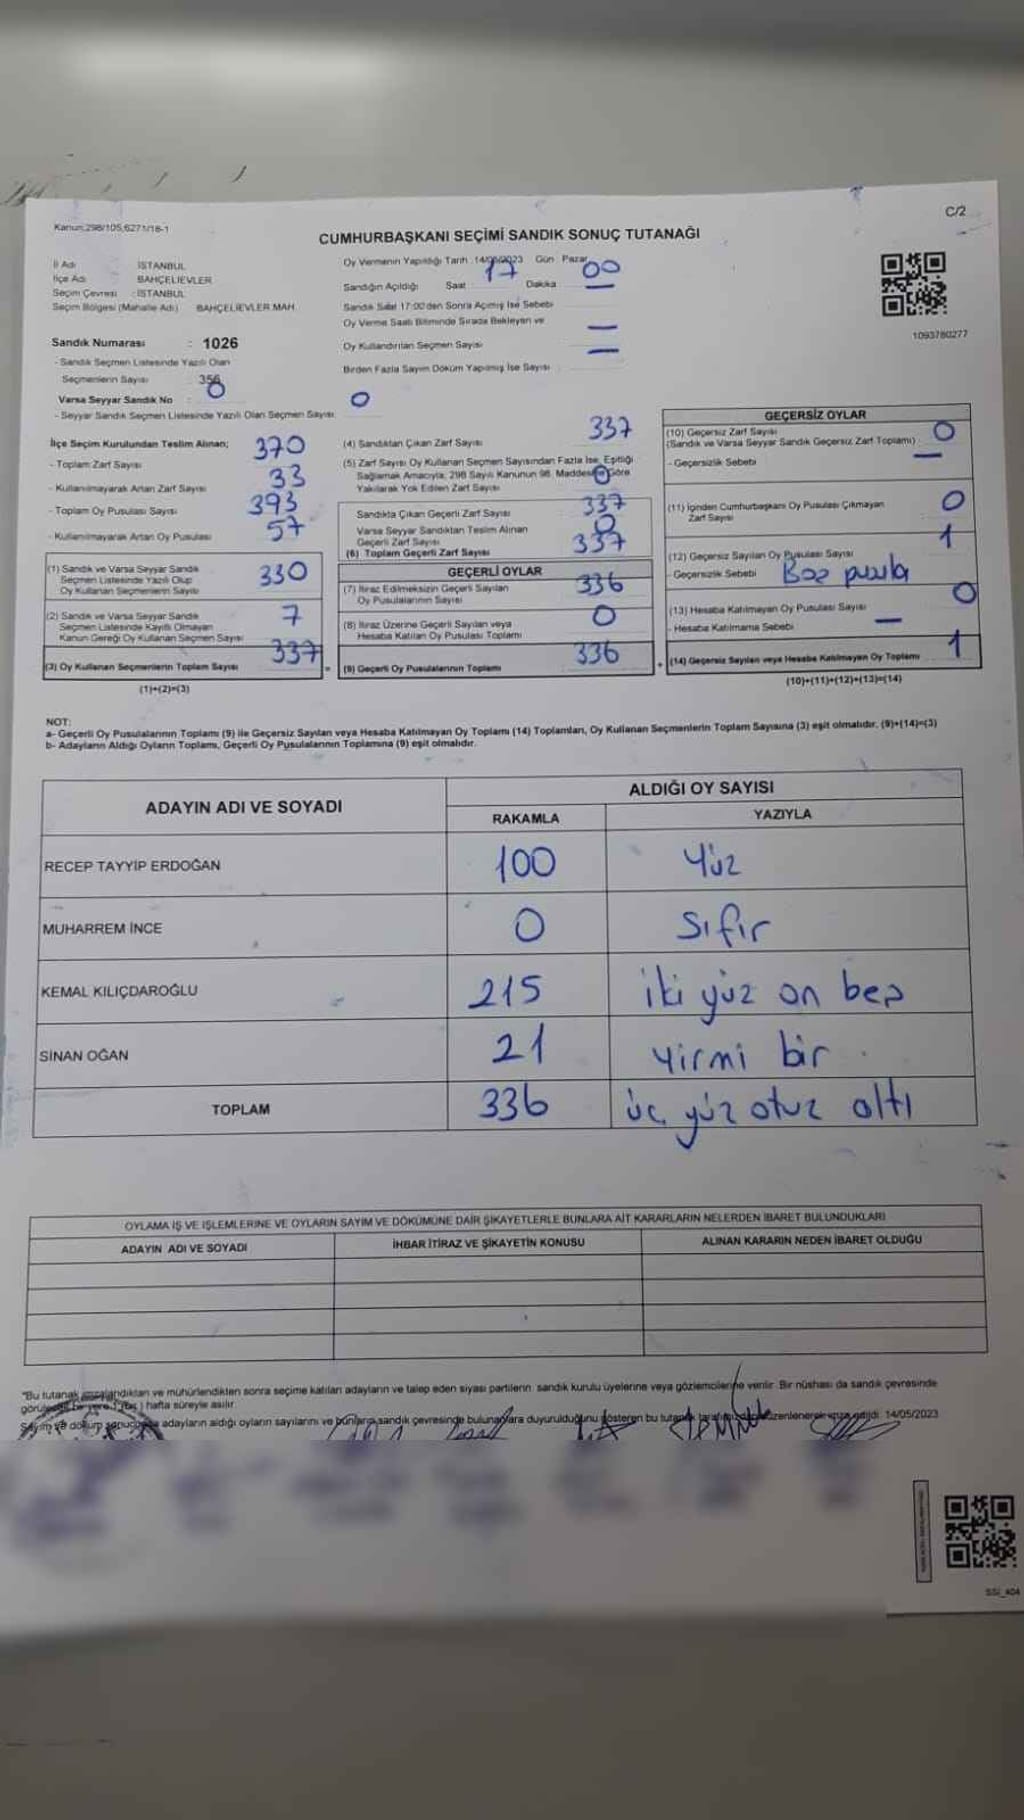 Kanun;298/105,6271/18-1
C/2
CUMHURBAŞKANI SEÇİMİ SANDIK SONUÇ TUTANAĞI
İl Adı : İSTANBUL
İlçe Adı : BAHÇELİEVLER
Seçim Çevresi : İSTANBUL
Seçim Bölgesi (Mahalle Adı) BAHÇELİEVLER MAH.
Sandık Numarası : 1026
- Sandık Seçmen Listesinde Yazılı Olan
Seçmenlerin Sayısı : 356
Varsa Seyyar Sandık No : 0
- Seyyar Sandık Seçmen Listesinde Yazılı Olan Seçmen Sayısı: 0
Oy Vermenin Yapıldığı Tarih :14/05/2023 Gün Pazar
Sandığın Açıldığı Saat 17 Dakika 00
Sandık Saat 17:00'den Sonra Açılmış İse Sebebi —
Oy Verme Saati Bitiminde Sırada Bekleyen ve
Oy Kullandırılan Seçmen Sayısı —
Birden Fazla Sayım Döküm Yapılmış İse Sayısı —
1093780277
İlçe Seçim Kurulundan Teslim Alınan;
- Toplam Zarf Sayısı 370
- Kullanılmayarak Artan Zarf Sayısı 33
- Toplam Oy Pusulası Sayısı 393
- Kullanılmayarak Artan Oy Pusulası 57
(1) Sandık ve Varsa Seyyar Sandık
Seçmen Listesinde Yazılı Olup
Oy Kullanan Seçmenlerin Sayısı 330
(2) Sandık ve Varsa Seyyar Sandık
Seçmen Listesinde Kayıtlı Olmayan
Kanun Gereği Oy Kullanan Seçmen Sayısı 7
(3) Oy Kullanan Seçmenlerin Toplam Sayısı 337
(1)+(2)=(3)
(4) Sandıktan Çıkan Zarf Sayısı 337
(5) Zarf Sayısı Oy Kullanan Seçmen Sayısından Fazla İse; Eşitliği
Sağlamak Amacıyla; 298 Sayılı Kanunun 98. Maddesine Göre
Yakılarak Yok Edilen Zarf Sayısı 0
Sandıkta Çıkan Geçerli Zarf Sayısı 337
Varsa Seyyar Sandıktan Teslim Alınan
Geçerli Zarf Sayısı 0
(6) Toplam Geçerli Zarf Sayısı 337
GEÇERLİ OYLAR
(7) İtiraz Edilmeksizin Geçerli Sayılan
Oy Pusulalarının Sayısı 336
(8) İtiraz Üzerine Geçerli Sayılan veya
Hesaba Katılan Oy Pusulası Toplamı 0
= (9) Geçerli Oy Pusulalarının Toplamı 336
GEÇERSİZ OYLAR
(10) Geçersiz Zarf Sayısı
(Sandık ve Varsa Seyyar Sandık Geçersiz Zarf Toplamı) 0
- Geçersizlik Sebebi —
(11) İçinden Cumhurbaşkanı Oy Pusulası Çıkmayan
Zarf Sayısı 0
(12) Geçersiz Sayılan Oy Pusulası Sayısı 1
- Geçersizlik Sebebi Boş pusula
(13) Hesaba Katılmayan Oy Pusulası Sayısı 0
- Hesaba Katılmama Sebebi —
+ (14) Geçersiz Sayılan veya Hesaba Katılmayan Oy Toplamı 1
(10)+(11)+(12)+(13)=(14)
NOT:
a- Geçerli Oy Pusulalarının Toplamı (9) ile Geçersiz Sayılan veya Hesaba Katılmayan Oy Toplamı (14) Toplamları, Oy Kullanan Seçmenlerin Toplam Sayısına (3) eşit olmalıdır. (9)+(14)=(3)
b- Adayların Aldığı Oyların Toplamı, Geçerli Oy Pusulalarının Toplamına (9) eşit olmalıdır.
ADAYIN ADI VE SOYADI
ALDIĞI OY SAYISI
RAKAMLA YAZIYLA
RECEP TAYYİP ERDOĞAN 100 Yüz
MUHARREM İNCE 0 Sıfır
KEMAL KILIÇDAROĞLU 215 iki yüz on beş
SİNAN OĞAN 21 yirmi bir
TOPLAM 336 üç yüz otuz altı
OYLAMA İŞ VE İŞLEMLERİNE VE OYLARIN SAYIM VE DÖKÜMÜNE DAİR ŞİKAYETLERLE BUNLARA AİT KARARLARIN NELERDEN İBARET BULUNDUKLARI
ADAYIN ADI VE SOYADI İHBAR İTİRAZ VE ŞİKAYETİN KONUSU ALINAN KARARIN NEDEN İBARET OLDUĞU
"Bu tutanak imzalandıktan ve mühürlendikten sonra seçime katılan adayların ve talep eden siyasi partilerin, sandık kurulu üyelerine veya gözlemcilerine verilir. Bir nüshası da sandık çevresinde
görülecek bir yere 1 (bir) hafta süreyle asılır.
Sayım ve döküm sonucunda adayların aldığı oyların sayılarını ve bunların sandık çevresinde bulunanlara duyurulduğunu gösteren bu tutanak tarafımızdan düzenlenerek imza edildi. 14/05/2023
SSI_404